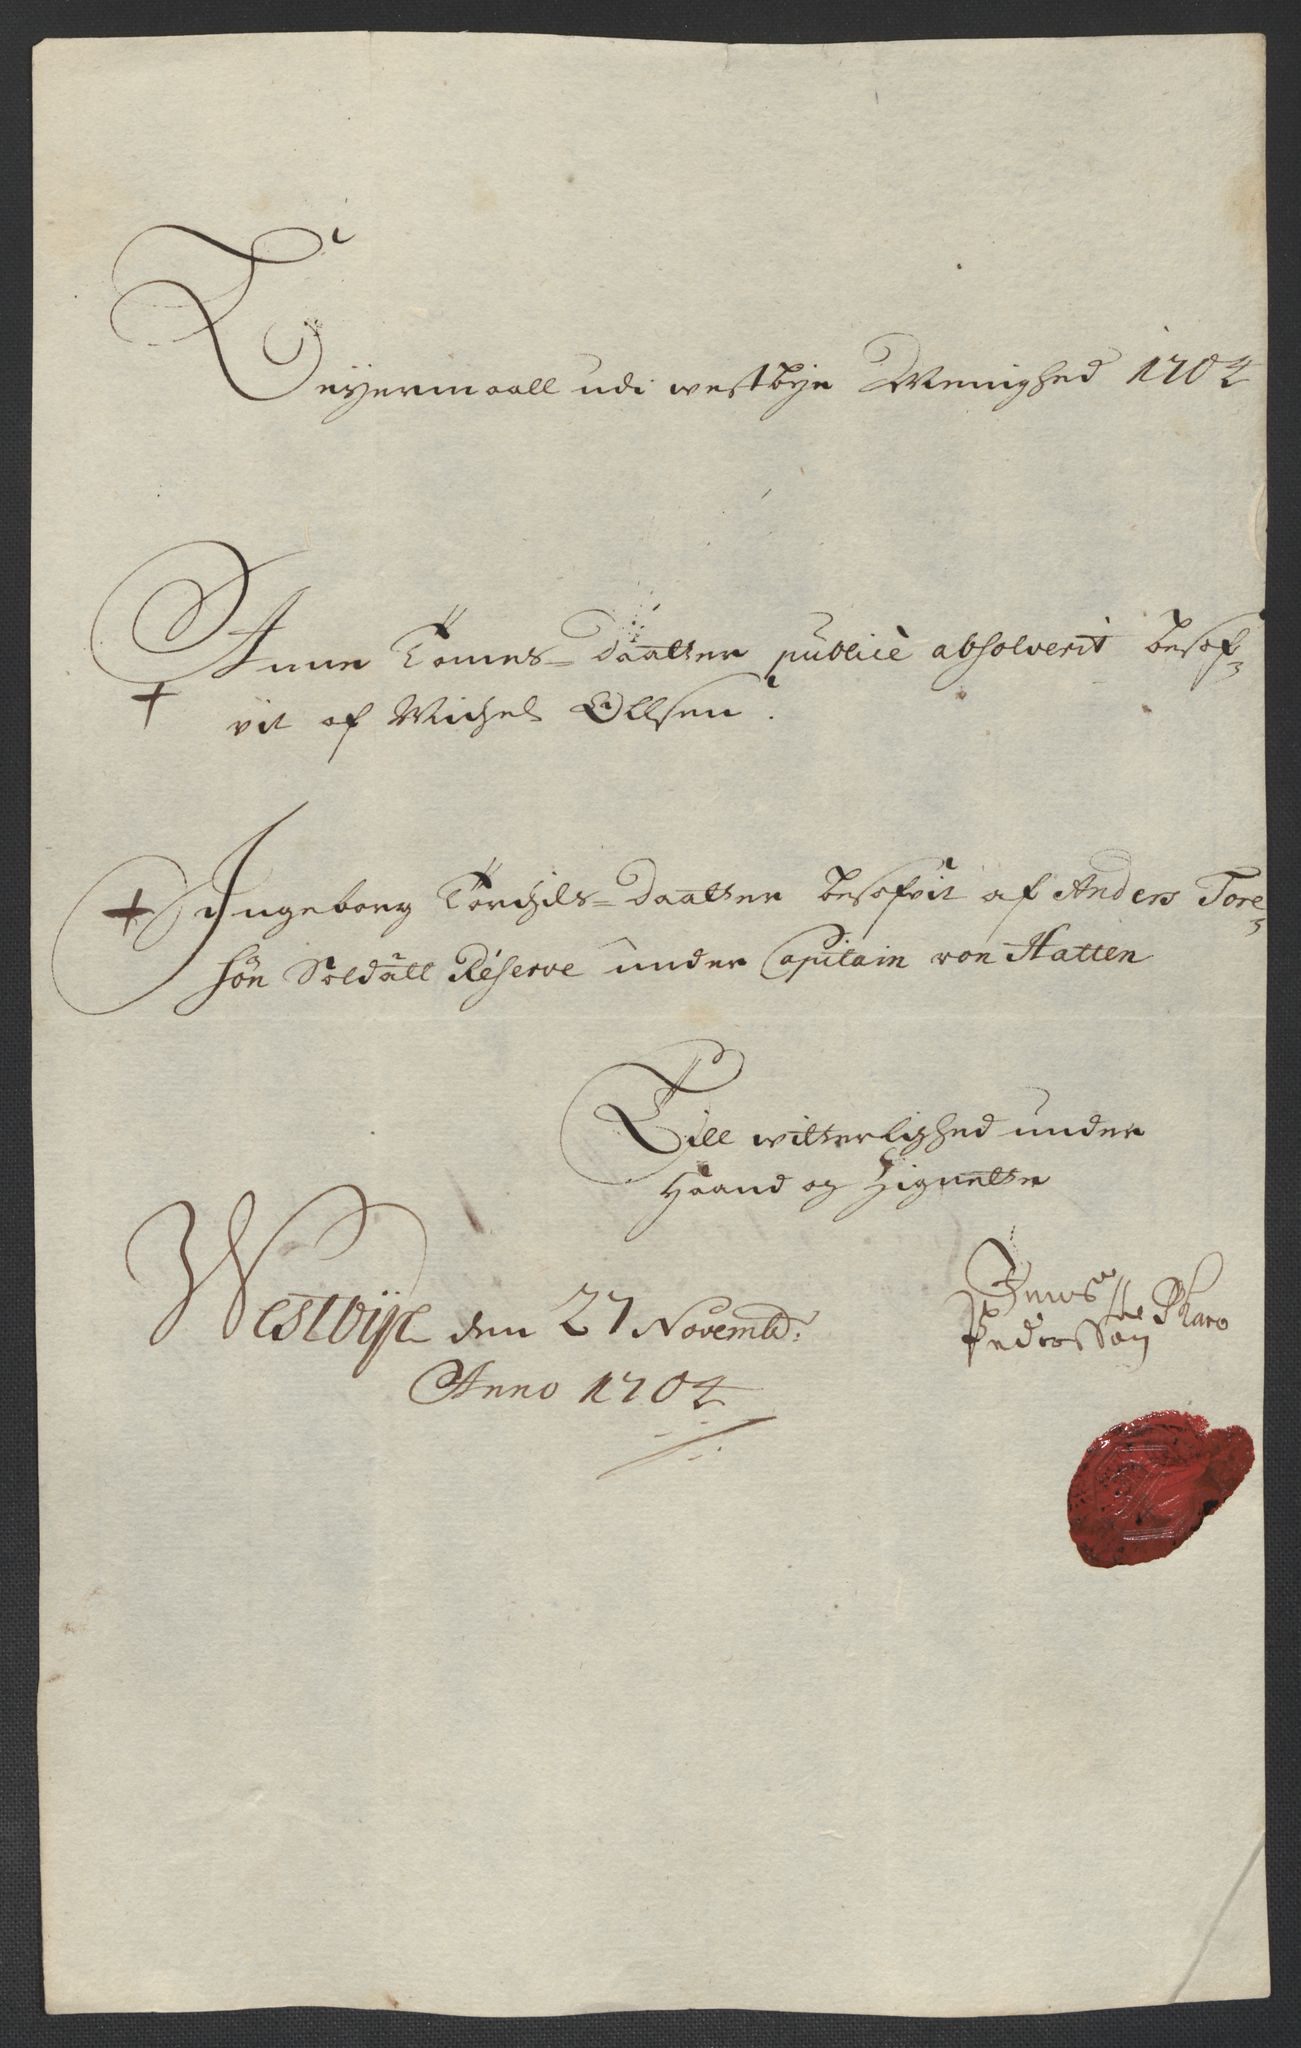 Leyermaall udi westbye Menighed 1704
Anne Tomes=daatter publicè absolverit besof=
vit af Michel Ollsen.
Ingeborg Torchils=daatter besofvit af Anders Tore=
sön Soldatt Reserve under Capitain von Hatten
Till witterlighed under
Haand og Zignette
Westbÿe den 27 Novembr:
Anno 1704
Jens
Pedersson Pharo